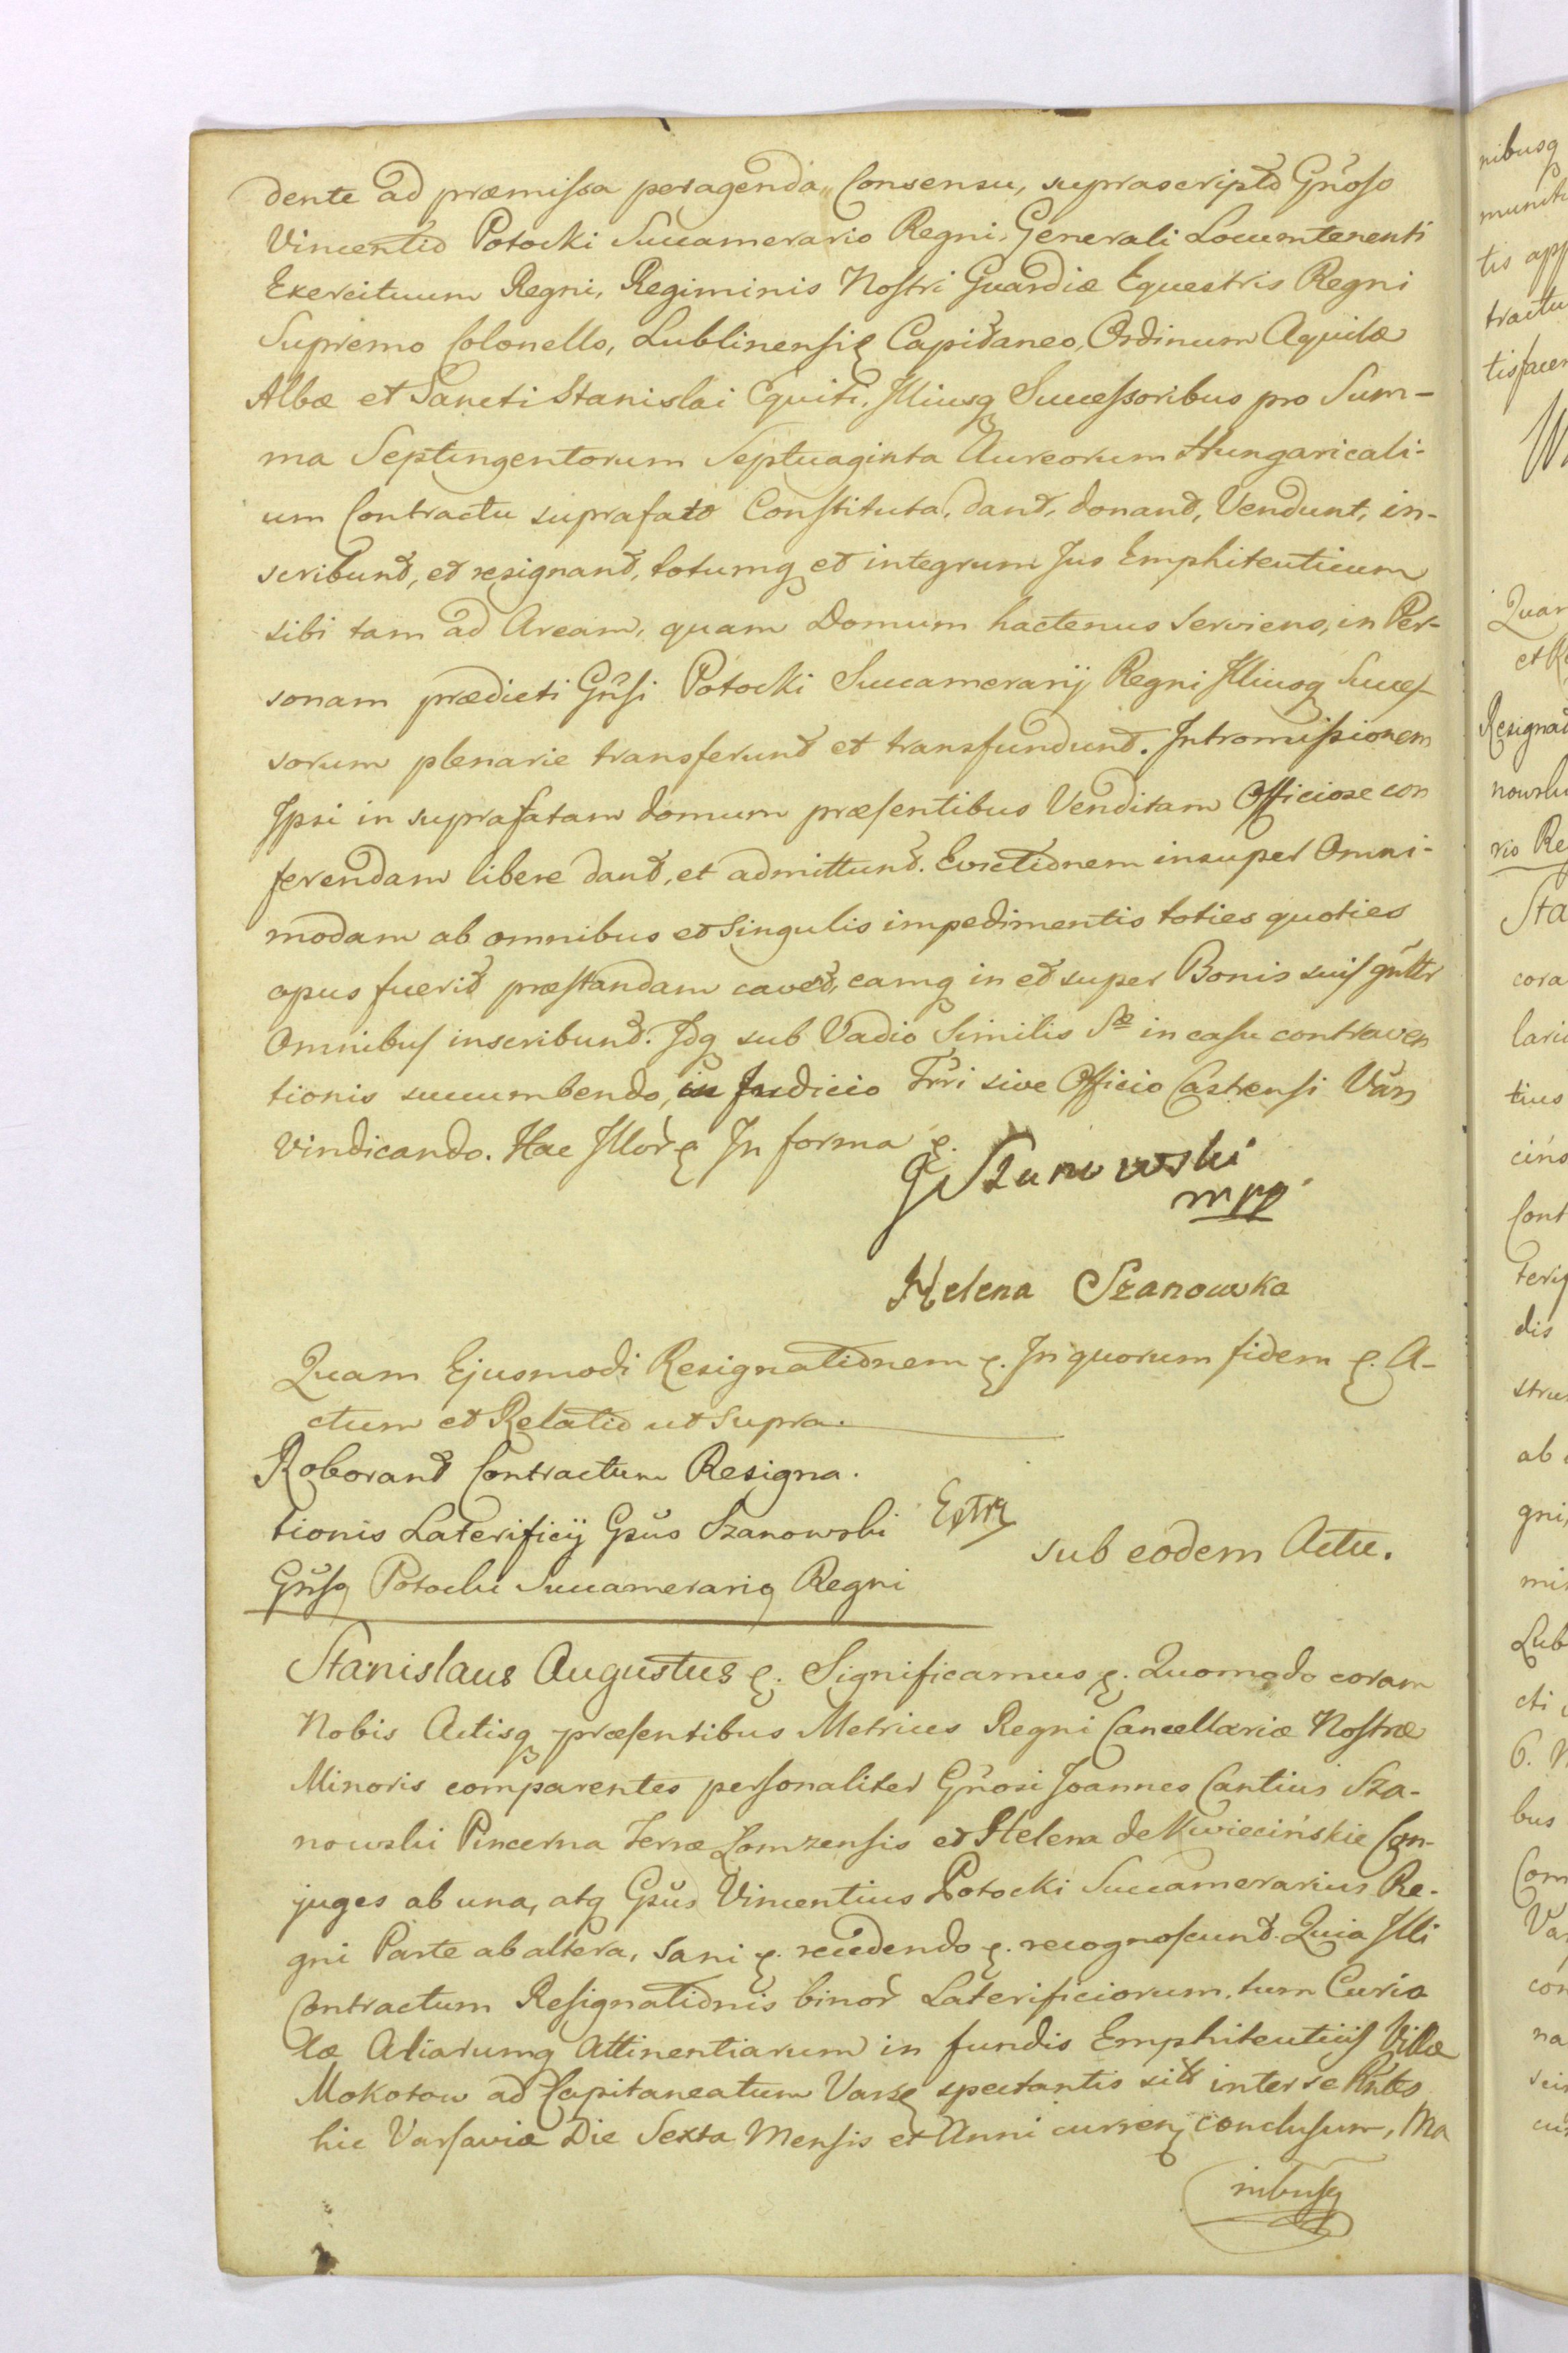 dente ad præmissa peragenda, Consensu, suprascripto Gñoso
Vincentio Potocki Succamerario Regni, Generali Locumtenenti
Exercituum Regni, Regiminis Nostri Guardiæ Equestris Regni
Supremo Colonello, Lublinensi Capitaneo, Ordinum Aquilæ
Albæ et Sancti Stanislai Equiti, Illiusq Successoribus pro Sum-
ma Septingentorum Septuaginta Aureorum Hungaricali-
um Contractu suprafato Constituta, dant, donant, Vendunt, in-
scribunt, et resignant, totumq et integrum Jus Emphiteuticum
sibi tam ad Aream, quam Domum hactenus serviens, in Per-
sonam prædicti Gñsi Potocki Succamerarij Regni Illiusq Succes-
sorum plenarie transferunt et transfundunt. Intromissionem
Ipsi in suprafatam domum præsentibus Venditam Officiose con
ferendam libere dant, et admittunt. Evictionem insuper Omni-
modam ab omnibus et Singulis impedimentis toties quoties
opus fuerit præstandam cavent, eamq in et super Bonis suis gñltr
Omnibus inscribunt. Idq sub Vadio Similis Sæ in casu contraven
tionis succumbendo, in Judicio Trri sive Officio Castrensi Vars
vindicando. Hac Illor In forma
J. Szanowski
mpp
Helena Szanowska
Quam Ejusmodi Resignationem In quorum fidem A-
ctum et Relatio ut supra.
Roborant Contractum Resigna.
tionis Laterificij Gsus Szanowski
sub eodem Actu.
Gñsq Potocki Succamerariq Regni
Stanislaus Augustus Significamus Quomodo coram
Nobis Actisq præsentibus Metrices Regni Cancellariæ Nostræ
Minoris comparentes personaliter Gñosi Joannes Cantius Sza-
nowski Pincerna Terræ Lomzensis et Helena de Kwiecińskie Con-
juges ab una, atq Gsus Vincentius Potocki Succamerarius Re-
gni Parte ab altera, Sani recedendo recognoscunt. Quia Illi
Contractum Resignationis binor Laterificiorum, tum Curio
læ Aliarumq Attinentiarum in fundis Emphiteuticis Villæ
Mokotow ad Capitaneatum Vars spectantis inter se
hic Varsaviæ Die Sexta Mensis et Anni curren conclusum, Ma
nibusq
nibusq
tis app
tractu
tisfacen
Quam
Resignat
Sta
cora
tius
dis
ab
gni,
Lub
cti
bus
Com
na